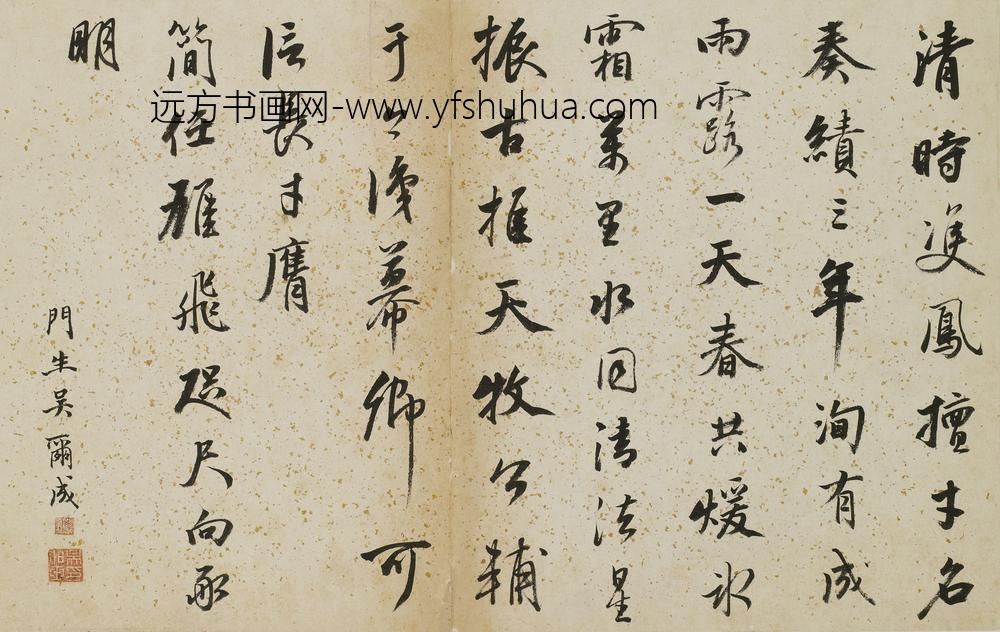 清時雙鳳擅才名
奏績三年洵有成
雨露一天春共煖冰
霜萬里水同清法星
振古推天牧公輔
于今後幕卿可
信長才膺
簡任雄飛咫尺向承
明
門生吳爾成
远方书画网-www.yfshuhua.com